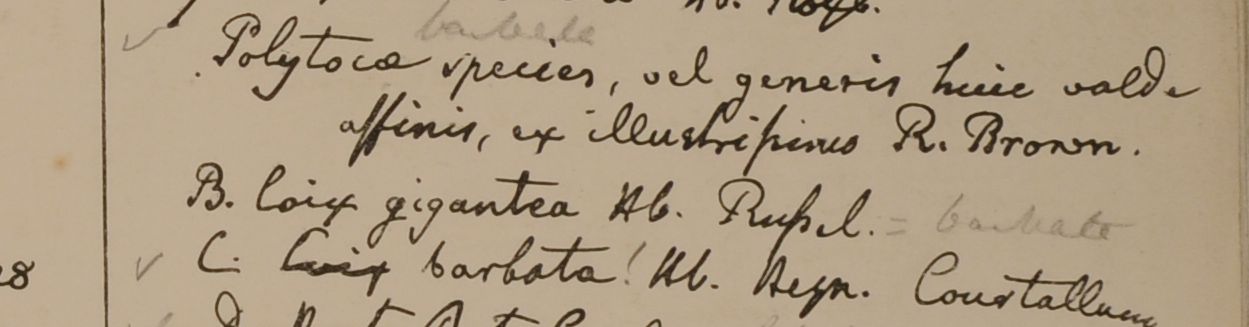 Hb. Roxb.
barbata
Polytocæ species, vel generis huic valde
affinis, ex illustrissimo R. Brown.
B. Coix gigantea Hb. Russel. = barbata
C. Coix barbata! Hb. Heyn. Courtallum
28